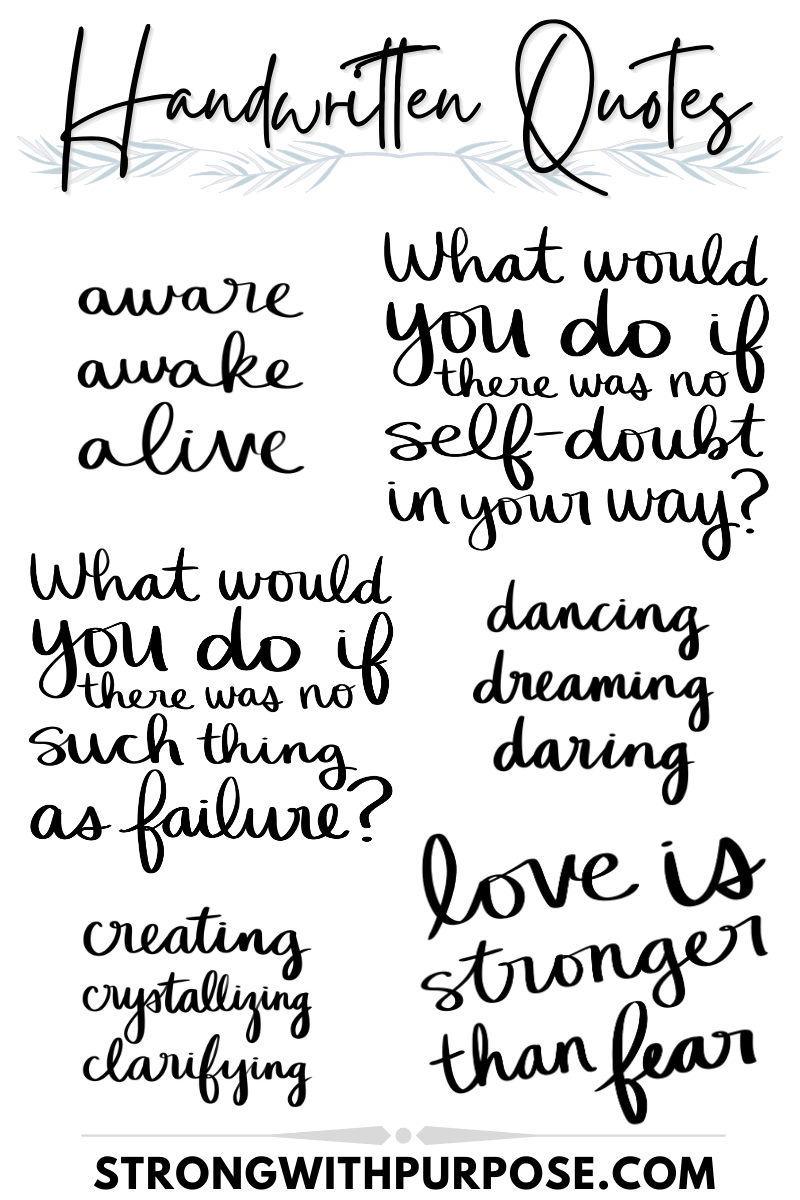 Handwritten Quotes
aware
awake
alive
What would
you do if
there was no
self-doubt
in your way?
What would
you do if
there was no
such thing
as failure?
dancing
dreaming
daring
creating
crystallizing
clarifying
love is
stronger
than fear
STRONGWITHPURPOSE.COM